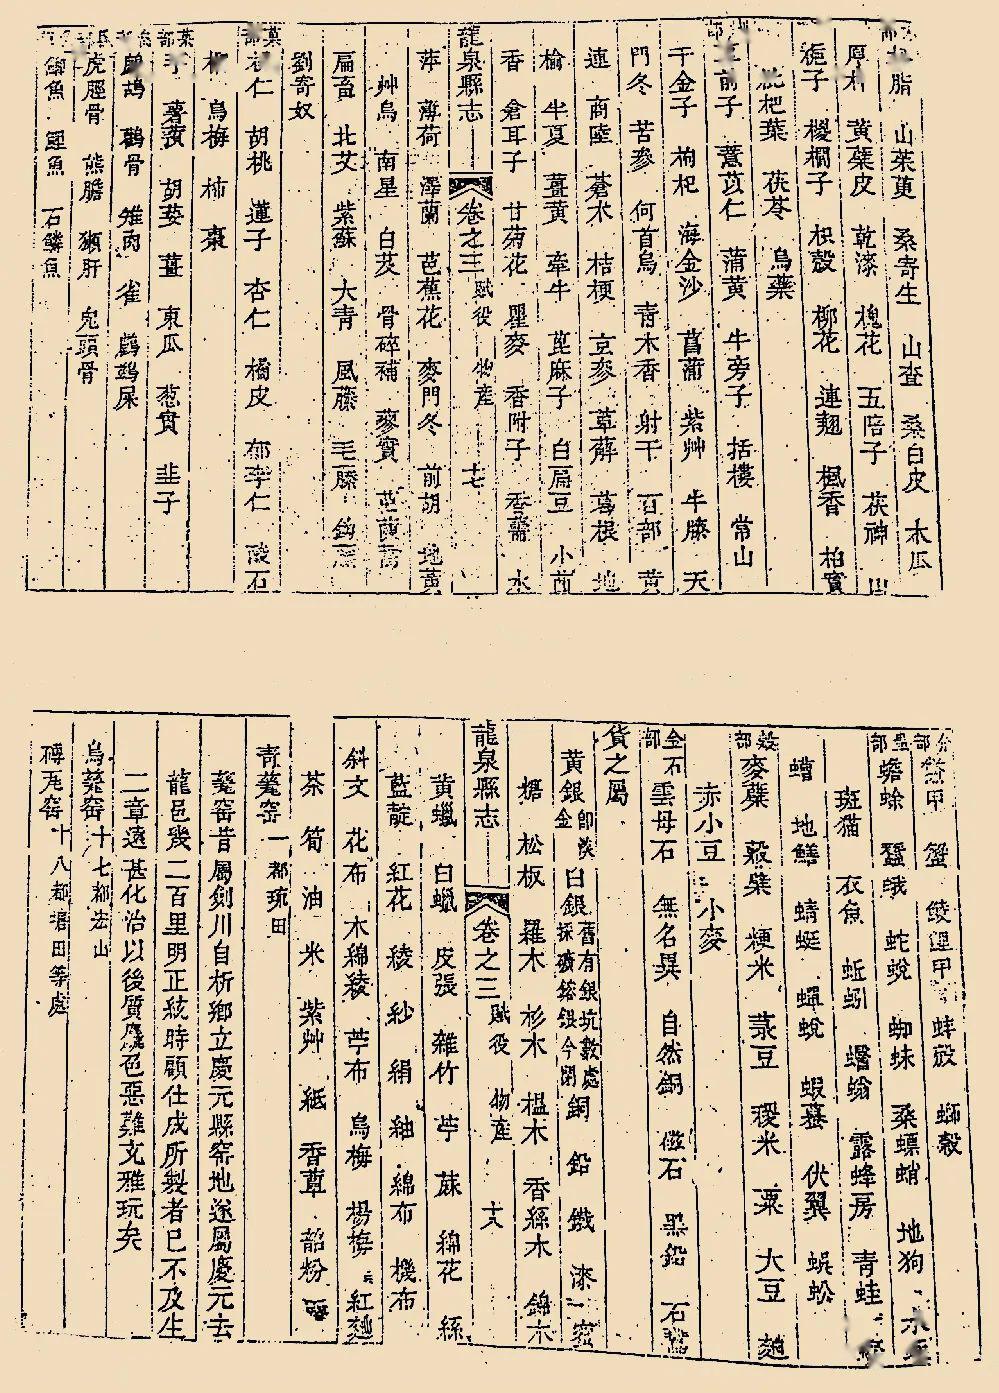 脂 山茱萸 桑寄生 山査 桑白皮 木瓜
厚朴 黃蘗皮 乾漆 槐花 五陪子 茯神 山
梔子 椶櫚子 枳殼 柳花 連翹 楓香 柏實
枇杷葉 茯苓 烏藥
車前子 薏苡仁 蒲黃 牛旁子 括樓 常山
千金子 枸杞 海金沙 菖蒲 紫艸 牛膝 天
門冬 苦參 何首烏 靑木香 射干 百部 黃
連 商陸 蒼术 桔梗 玄參 萆薢 葛根 地
榆 半夏 薑黃 牽牛 萞麻子 白扁豆 小茴
香 倉耳子 甘菊花 瞿麥 香附子 香薷 水
龍泉縣志 卷之三 賦役 物產 十七
萍 薄荷 澤蘭 芭蕉花 麥門冬 前胡 地黃
艸烏 南星 白芨 骨碎補 蓼實
扁畜 北艾 紫蘇 大青 風藤 毛藤
劉寄奴
菓部 仁 胡桃 蓮子 杏仁 橘皮 郁李仁 酸石
榴 烏梅 柿 棗
菜部 芋 薯蕷 胡荽 薑 東瓜 葱實 韭子
鷓鴣 鸛骨 雉肉 雀 鸕鷀屎
虎脛骨 熊膽 獺肝 兔頭骨
魚 鯉魚 石鱗魚
鼈甲 蟹 鯪鯉甲 蚌殼 螄殼
蟲部 蟾蜍 蠶蛾 蛇蛻 蜘蛛 桑螵蛸 地狗 水
斑猫 衣魚 蚯蚓 蠮螉 露蜂房 青蛙
螬 地鱔 蜻蜓 蟬蛻 蝦蟇 伏翼 蜈蚣
穀部 麥蘗 穀蘗 粳米 菉豆 稷米 粟 大豆 麯
赤小豆 小麥
金石部 雲母石 無名異 自然銅 磁石 黑鉛 石
貨之屬
黃銀 卽淡金 白銀 舊有銀坑數處採礦鎔銀今閉 銅 鉛 鐵 漆 蜜
楮 松板 羅木 杉木 榅木 香絲木 錦木
龍泉縣志 卷之三 賦役 物產 十八
黃蠟 白蠟 皮張 雜竹 苧 蔴 綿花 絲
藍靛 紅花 綾 紗 絹 紬 綿布 機布
斜文 花布 木綿綾 苧布 烏梅 楊梅 紅麯
茶 筍 油 米 紫艸 紙 香蕈 韶粉
靑甆窑 一都琉田
甆窑昔屬劍川自析鄉立慶元縣窑地遂屬慶元去
龍邑幾二百里明正統時顧仕成所製者已不及生
二章遠甚化治以後質麤色惡難充雅玩矣
烏甆窑 十七都坴山
磚瓦窑 十八都塔田等處